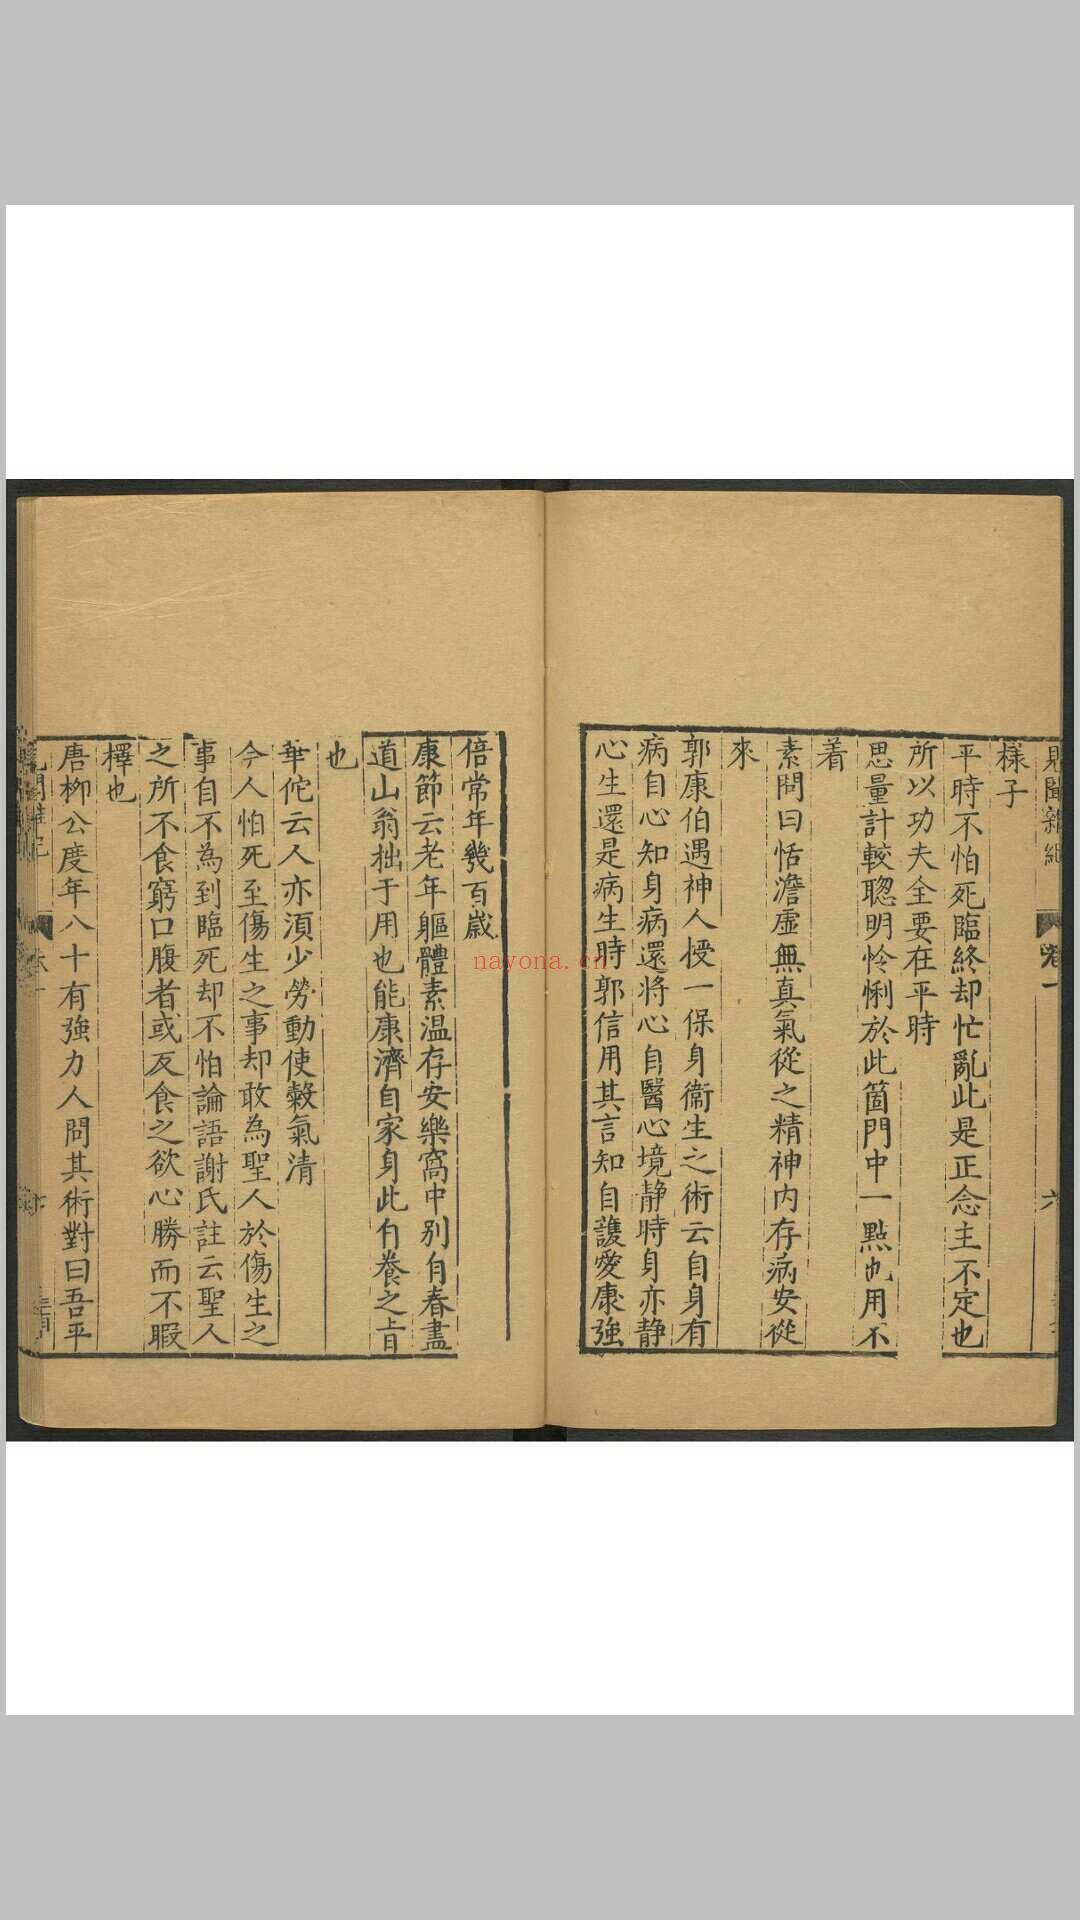 見聞雜紀 卷一 六
樣子
平時不怕死臨終却忙亂此是正念主不定也
所以功夫全要在平時
思量計較聰明怜悧於此箇門中一點也用不
着
素問曰恬澹虛無真氣從之精神内存病安從
來
郭康伯遇神人授一保身衞生之術云自身有
病自心知身病還將心自醫心境静時身亦静
心生還是病生時郭信用其言知自護愛康強
倍常年幾百歲
康節云老年軀體素温存安樂窩中别有春盡
道山翁拙于用也能康濟自家身此自養之旨
也
華佗云人亦須少勞動使穀氣清
今人怕死至傷生之事却敢為聖人於傷生之
事自不為到臨死却不怕論語謝氏註云聖人
之所不食窮口腹者或反食之欲心勝而不暇
擇也
唐柳公度年八十有強力人問其術對曰吾平
nayona.cn